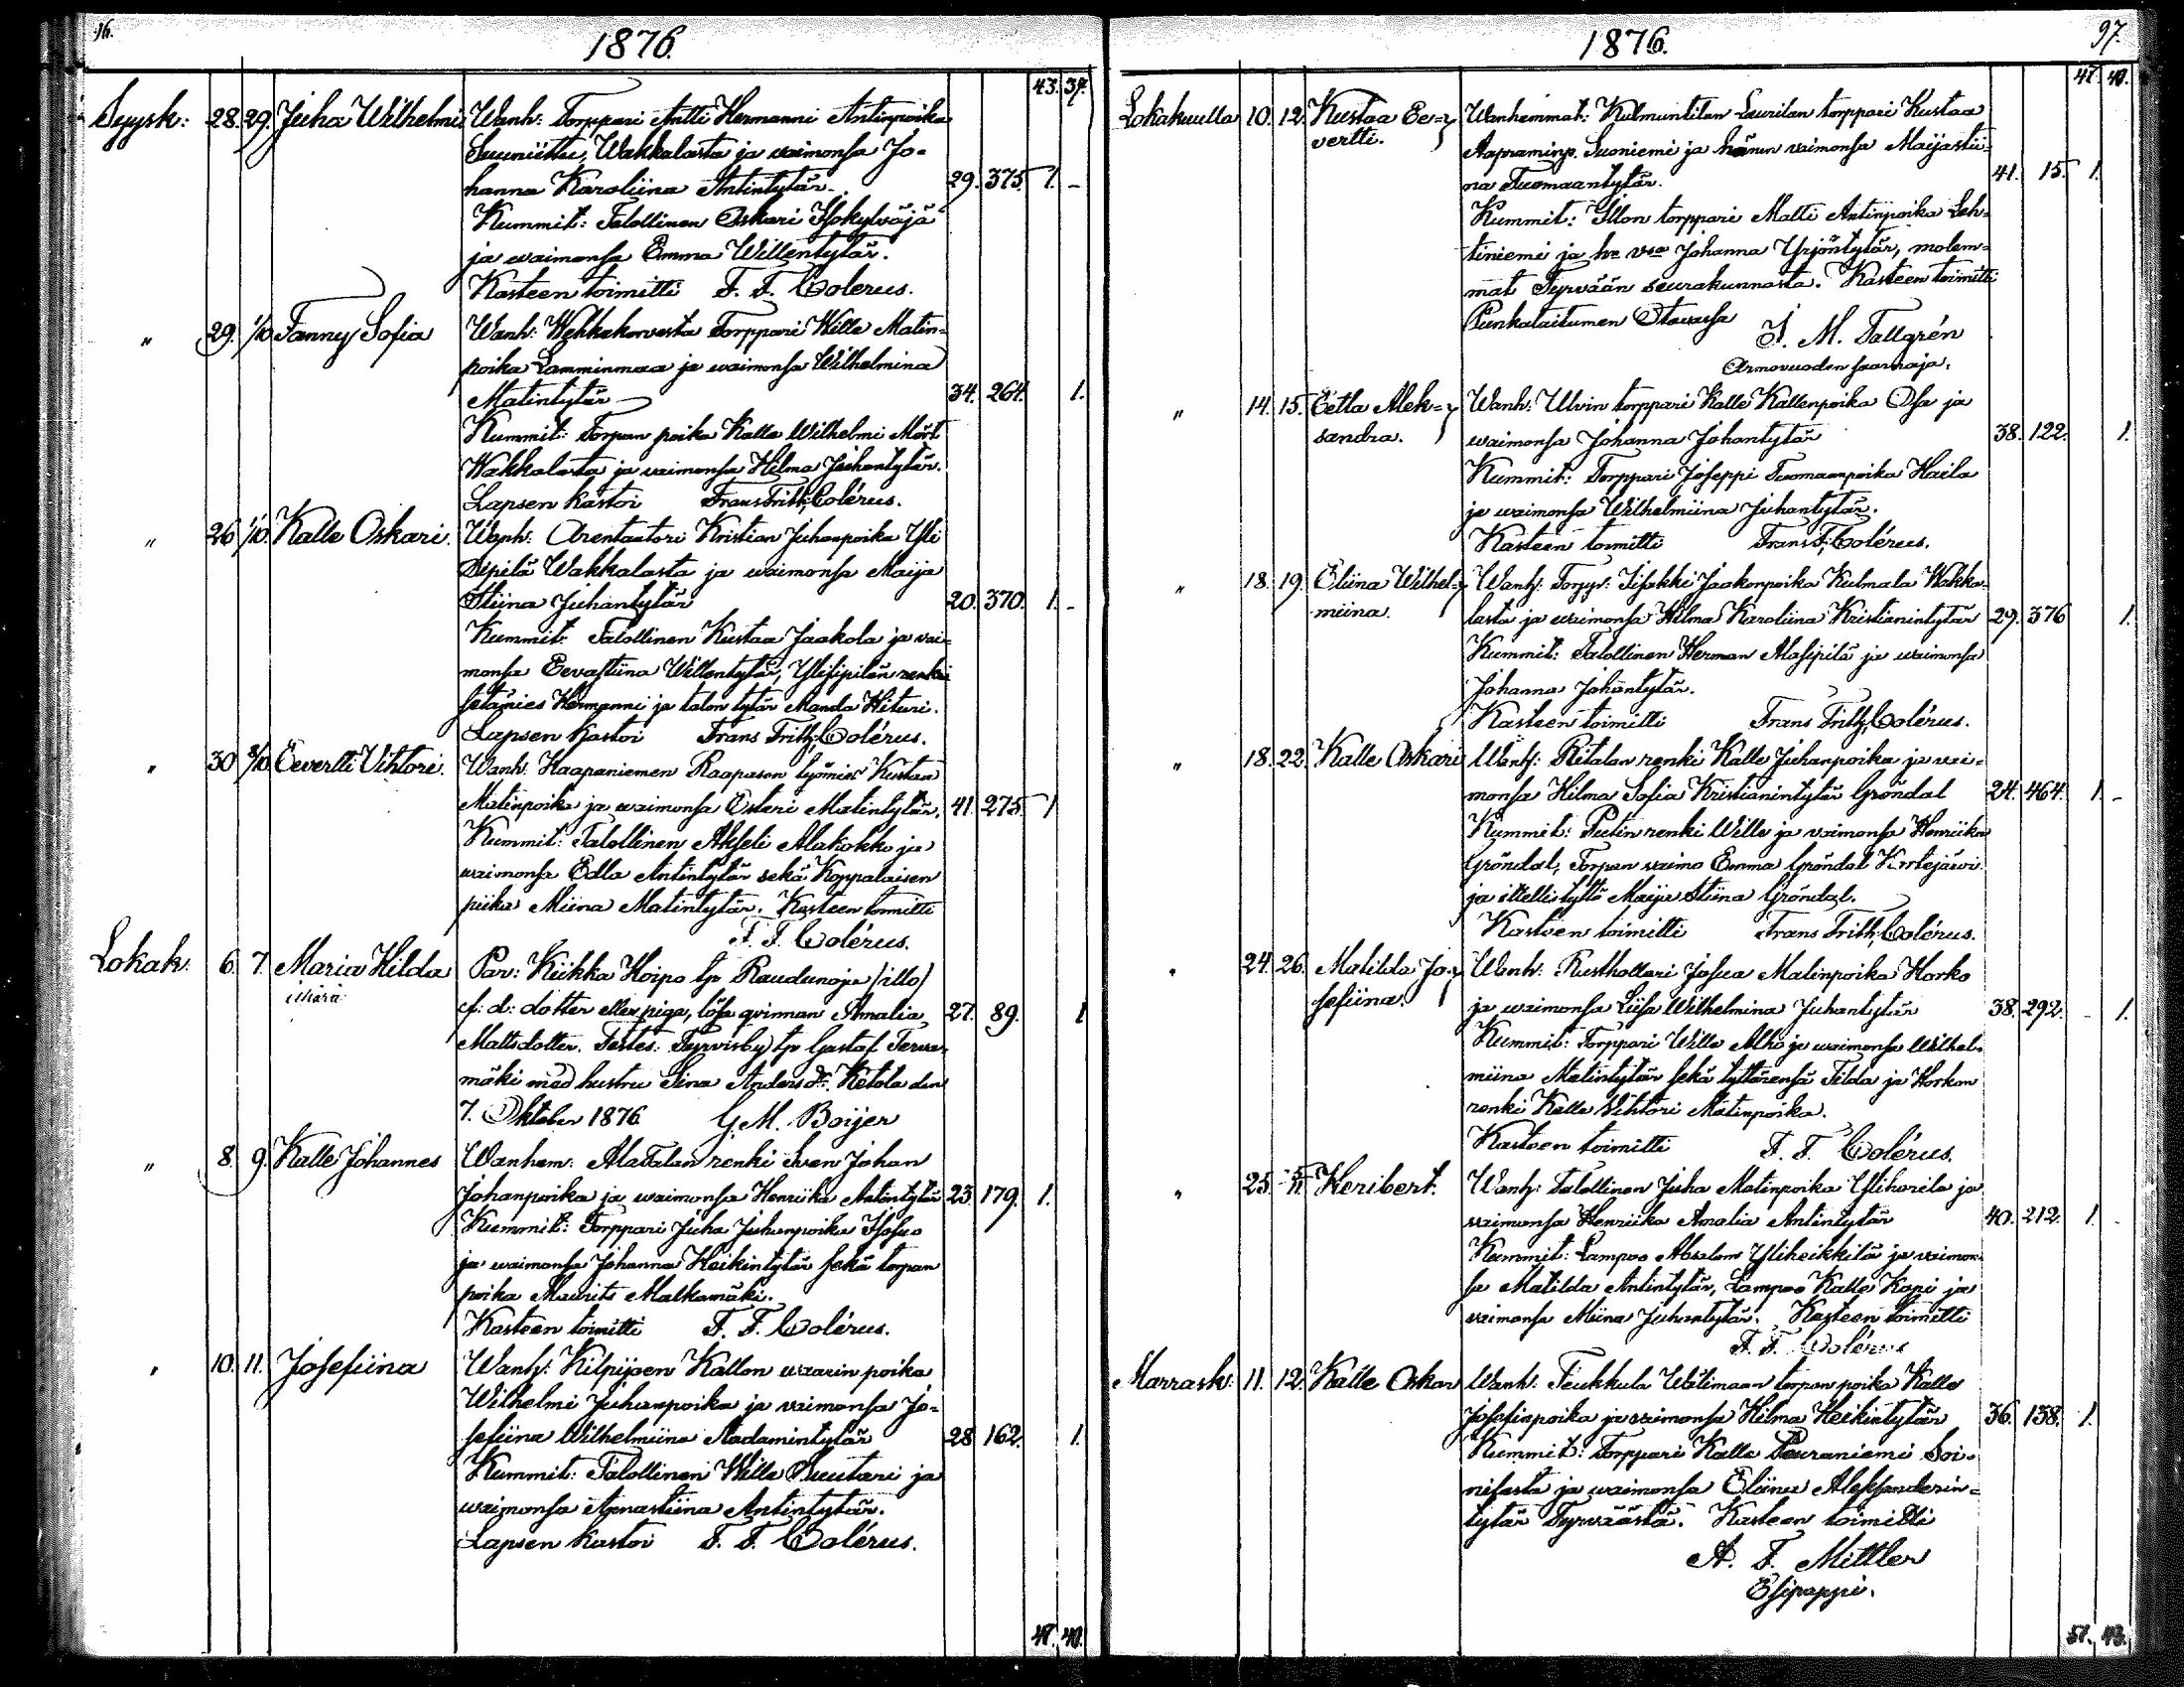 16.
1876.
43. 37.
Syysk: 28. 29. Juha Wilhelmi Wanh: Torppari Antti Hermanni Antinpoika
Wakkalasta ja waimonsa Jo-
hanna Karoliina Antintytär. 29. 375 1. -
Kummit: Talollinen Oskari
ja waimonsa Emma Willentytär.
Kasteen toimitti F. F. Colerus.
" 29. 1/10 Fanny Sofia Wanh: Torppari Wille Matin-
poika Lamminmaa ja waimonsa Wilhelmina
Matintytär 34. 264. 1.
Kummit: Torpan poika Kalle Wilhelmi Mört
Wakkalasta ja waimonsa Hilma Juhantytär.
Lapsen kastoi Frans Frith. Colérus.
" 26 1/10. Kalle Oskari. Wanh: Arentaatori Kristian Juhanpoika Yli
Sipilä Wakkalasta ja waimonsa Maija
Stiina Juhantytär 20. 370. 1. -
Kummit: Talollinen Kustaa Jaakola ja wai-
monsa Eevastiina Willentytär, Ylisipilän renki
setämies Hermanni ja talon tytär Manda Hituri.
Lapsen kastoi Frans Frith. Colérus.
" 30 Eevertti Vihtori. Wanh: Haapaniemen Raapason työmies Kustaa
Matinpoika ja waimonsa Esteri Matintytär. 41. 275. 1
Kummit: Talollinen Akseli Alakokko ja
waimonsa Edla Antintytär sekä Koppalaisen
piika Miina Matintytär. Kasteen toimitti
F. F. Colérus.
Lokak: 6. 7. Maria Hilda Par: Kiikka Hoipo tp Raudunoja (illo)
f: d: dotter piga, lösa qvinnan Amalia 27. 89. 1
Mattsdotter. Testes: Tyrvisby tp Gustaf Terva-
mäki med hustru Sina Anders dr. Ketola den
7. Oktober 1876 G. M. Boijer
" 8. 9. Kalle Johannes Wanhem: AlaTalan renki Sven Johan
Johanpoika ja waimonsa Henriika Antintytär 23. 179. 1.
Kummit: Torppari Juha Juhanpoika
ja waimonsa Johanna Heikintytär sekä torpan
poika Maurits Malkamäki.
Kasteen toimitti F. F. Colérus.
" 10. 11. Josefiina Wanh: Kilpijoen Kallon waarin poika
Wilhelmi Juhanpoika ja vaimonsa Jo-
sefiina Wilhelmiina Aadamintytär 28 162. 1.
Kummit: Talollinen Wille Suutari ja
waimonsa Antintytär.
Lapsen kastoi F. F. Colérus.
47. 40.
1876.
97.
47. 40.
Lokakuulla 10. 12. Kustaa Ee- Wanhemmat: Kulmuntilan Laurilan torppari Kustaa
vertti. Aapraminp. Suoniemi ja hänen vaimonsa Maijastii-
na Tuomaantytär. 41. 15. 1.
Kummit: Illon torppari Matti Antinpoika Leh-
tiniemi ja hn vsa Johanna Yrjöntytär, molem-
mat Tyrvään seurakunnasta. Kasteen toimitti
Punkalaitumen Otavassa
I. M. Tallgrén
Armovuoden saarnaaja.
" 14. 15. Eetla Alek- Wanh: Ulvin torppari Kalle Kallenpoika Osa ja
sandra. waimonsa Johanna Johantytär 38. 122. 1.
Kummit: Torppari Joseppi Tuomaanpoika Haila
ja waimonsa Wilhelmiina Juhantytär.
Kasteen toimitti Frans F. Colérus.
" 18. 19. Eliina Wilhel- Wanh: Torpp. Iisakki Jaakonpoika Kulmala Wakka-
miina. lasta ja waimonsa Hilma Karoliina Kristianintytär 29. 376 1.
Kummit: Talollinen Herman Alasipilä ja waimonsa
Johanna Johantytär.
Kasteen toimitti Frans Frith. Colérus.
" 18. 22. Kalle Oskari Wanh: Ritalan renki Kalle Juhanpoika ja wai-
monsa Hilma Sofia Kristianintytär Gröndal 24. 464. 1. -
Kummit: Putin renki Wille ja vaimonsa Henriika
Gröndal, Torpan vaimo Emma Gröndal Kurtejärvi
ja itellistyttö Maija Stiina Gröndal.
Kasteen toimitti Frans Frith. Colérus.
" 24. 26. Matilda Jo- Wanh: Rusthollari Josua Matinpoika Horko
sefiina. ja waimonsa Liisa Wilhelmina Juhantytär 38. 292. - 1.
Kummit: Torppari Wille Alho ja waimonsa Wilhel-
miina Matintytär sekä tyttärensä Tilda ja Horkon
renki Kalle Vihtori Matinpoika.
Kasteen toimitti F. F. Colérus.
" 25 5/11 Heribert. Wanh: Talollinen Juha Matinpoika Ylihorila ja
waimonsa Henriika Amalia Antintytär 40. 212. 1. -
Kummit: Lampuo Absalom Yliheikkilä ja vaimon-
sa Matilda Antintytär, Lampuo Kalle Kapi ja
vaimonsa Miina Juhantytär. Kasteen toimitti
F. F. Colérus
Marrask: 11. 12. Kalle Oskar Wanh: Teukkula Wälimaan torpan poika Kalle
Josefinpoika ja vaimonsa Hilma Heikintytär 36. 138. 1.
Kummit: Torppari Kalle Peuraniemi Soi-
nilasta ja waimonsa Eliina Aleksanderin-
tytär Tyrväästä. Kasteen toimitti
A. F. Mittler
Esipappi.
51. 43.